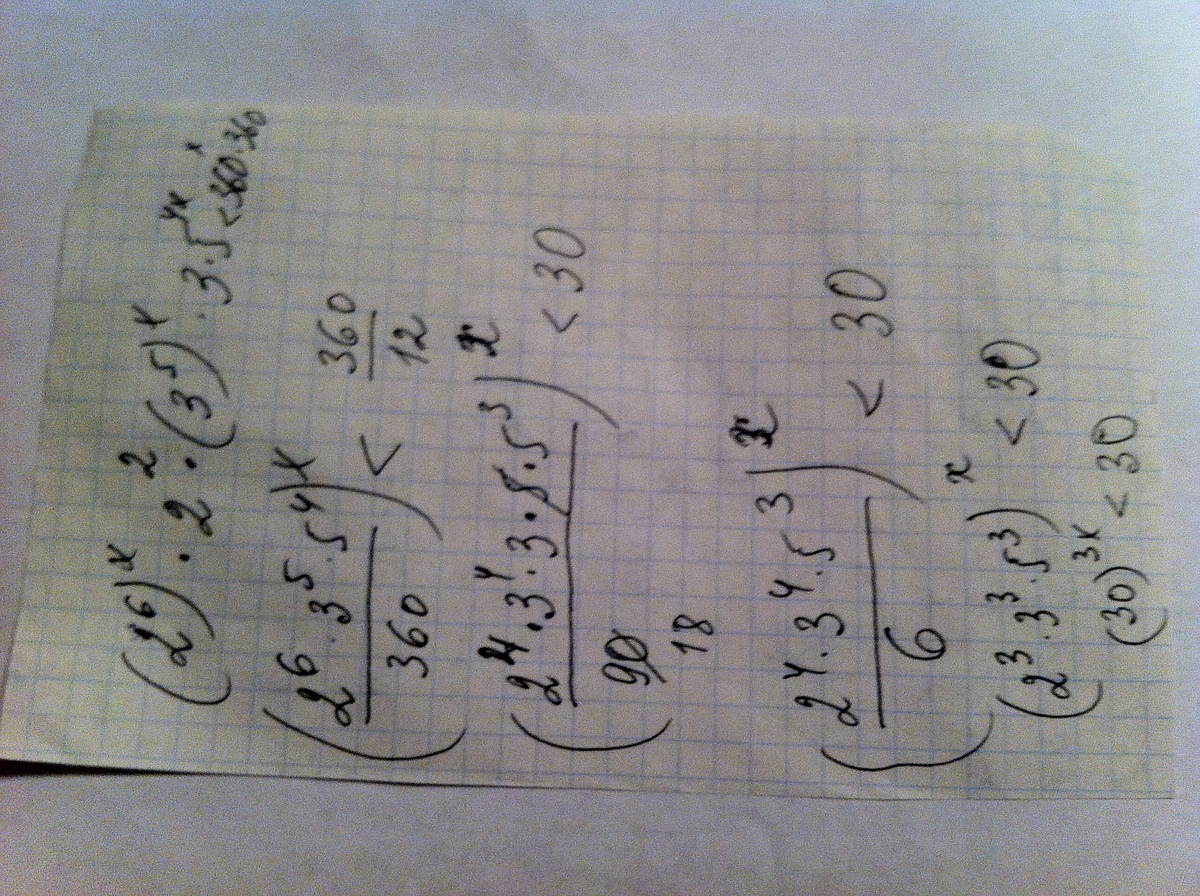 (2⁶)ˣ · 2² · (3⁵)ˣ · 3 · 5⁴ˣ < 360 · 360ˣ
(2⁶ · 3⁵ · 5⁴ / 360)ˣ < 360 / 12
(2⁴ · 3⁴ · 3 · 5 · 5³ / 90)ˣ < 30
18
(2⁴ · 3⁴ · 5³ / 6)ˣ < 30
(2³ · 3³ · 5³)ˣ < 30
(30)³ˣ < 30